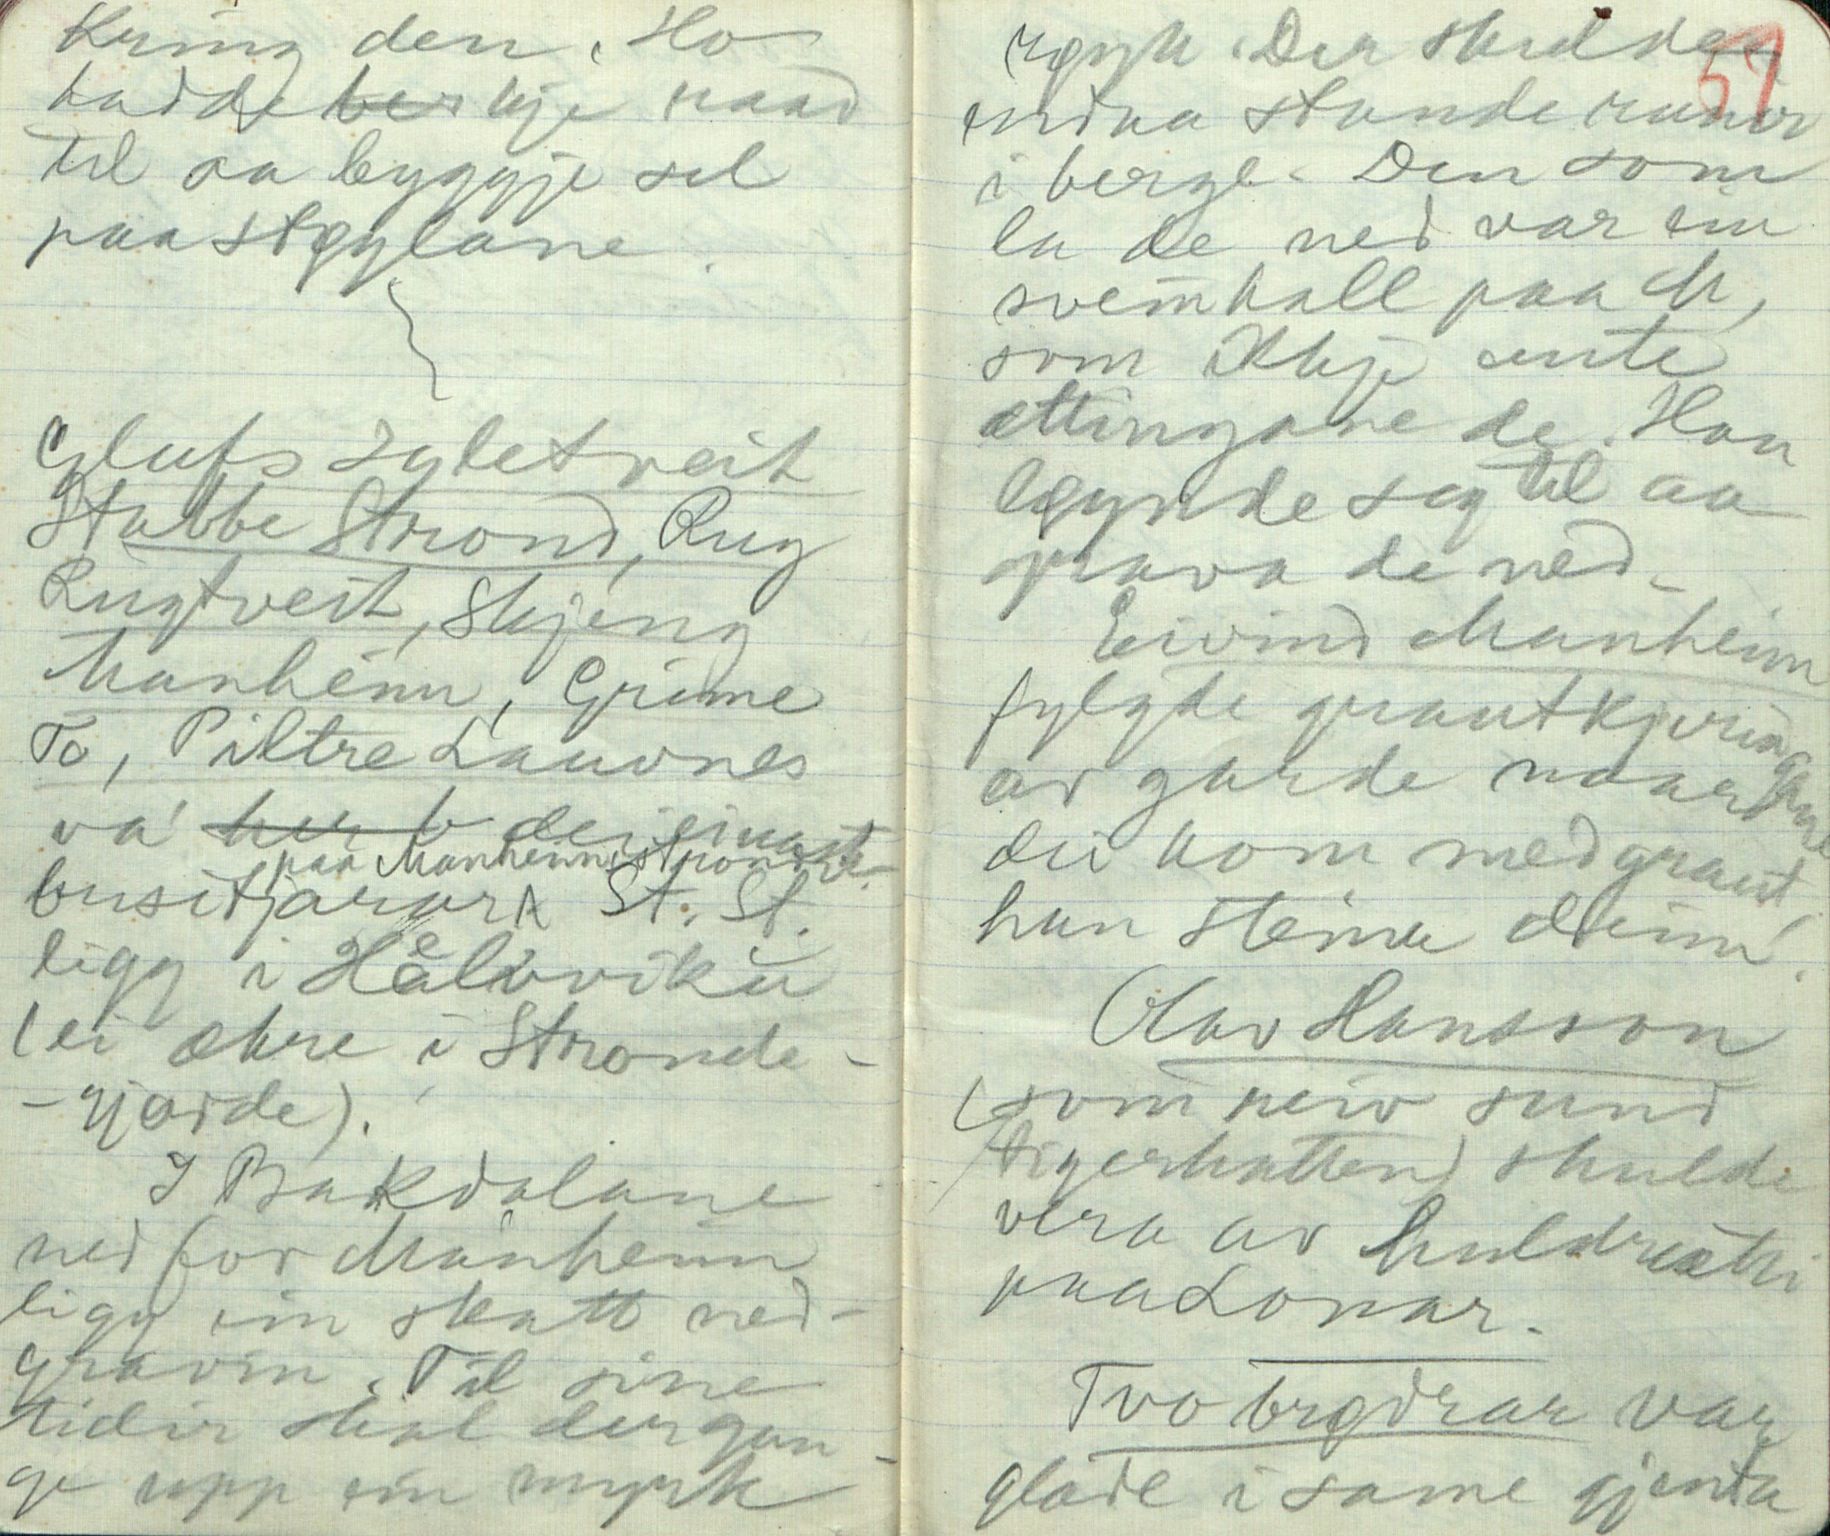 Kring den. Ho
hadde ber kje raad
til aa byggje sel
paa støylane.
Glufs Syletveit
Stabbe Strond, Rug
Rugtveit, Skjeng
Manheim, Grime
To, Piltre Launes
va' her b dei einaste
paa Manheimstrondi.
busitjarar St. St.
ligg i Hålvviku
(ei åkre i Stronde-
-gjarde).
I Bakdalane
ned for Manheim
ligg ein skatt ned-
gravin. Til sine
tidir skal der gan-
ge upp ein mørk
røyk. Der skulde
57
endaa stande runor
i berge. Den som
la de ned var ein
sveinkall paa M,
som ikkje unte
ættingane de. Han
løynde seg til aa
grava de ned.
Eivind Manheim
fylgde grautkjeringane
av garde naar
dei kom med graut,
han steina deim!
Olav Hansson
(som reiv sund
tigerhatten) skulde
vera av huldreætti
paa Lonar.
Tvo brødrar var
glade i same gjenta